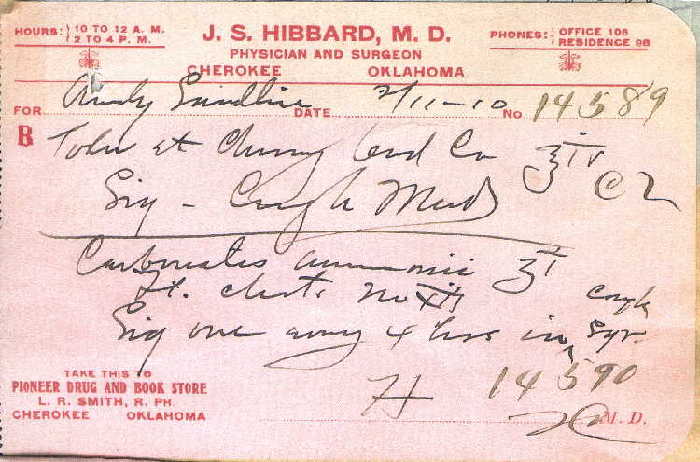 HOURS: 10 TO 12 A. M.
2 TO 4 P. M.
J. S. HIBBARD, M. D.
PHYSICIAN AND SURGEON
CHEROKEE OKLAHOMA
PHONES: OFFICE 108
RESIDENCE 98
FOR Andy DATE 2/11-10 No 14589
Tolu et Cherry Cod Co ʒIV
Sig - Cough Med C2
Carbonates ammonia ʒI
Ft. charts No XII
Sig one every 4 hrs in cough Syr.
TAKE THIS TO
PIONEER DRUG AND BOOK STORE
L. R. SMITH, R. PH.
CHEROKEE OKLAHOMA
H 14590
M. D.